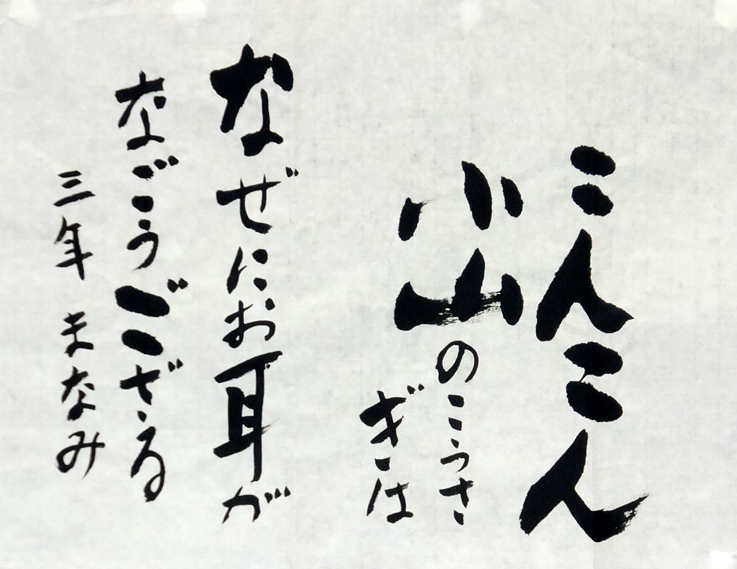 こんこん
小山のこうさ
ぎは
なぜにお耳が
なごうござる
三年 まなみ